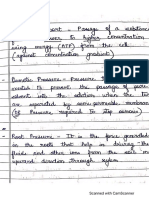 ment - Passage of a substance
lower to higher concentration
using energy (ATP) from the cell
(against concentration gradient)
Osmotic Pressure - Pressure
exerted to prevent the passage of pure
solvent into the solution when the two
are separated by semi-permeable membrane
(i.e. Pressure required to stop osmosis)
Root Pressure - It is the force generated
in the roots that help in driving the
fluids and other ions from the soil in
upward direction through xylem
Scanned with CamScanner